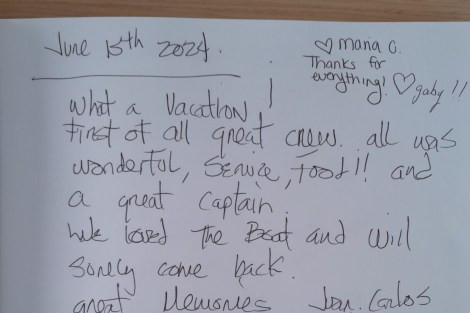 June 15th 2024.
♡ maria c.
Thanks for
everything! ♡ gaby !!
What a Vacation!
First of all great crew. all was
wonderful, Service, Food!! and
a great Captain.
We loved the Boat and will
Sorely come back.
great Memories Juan. Carlos